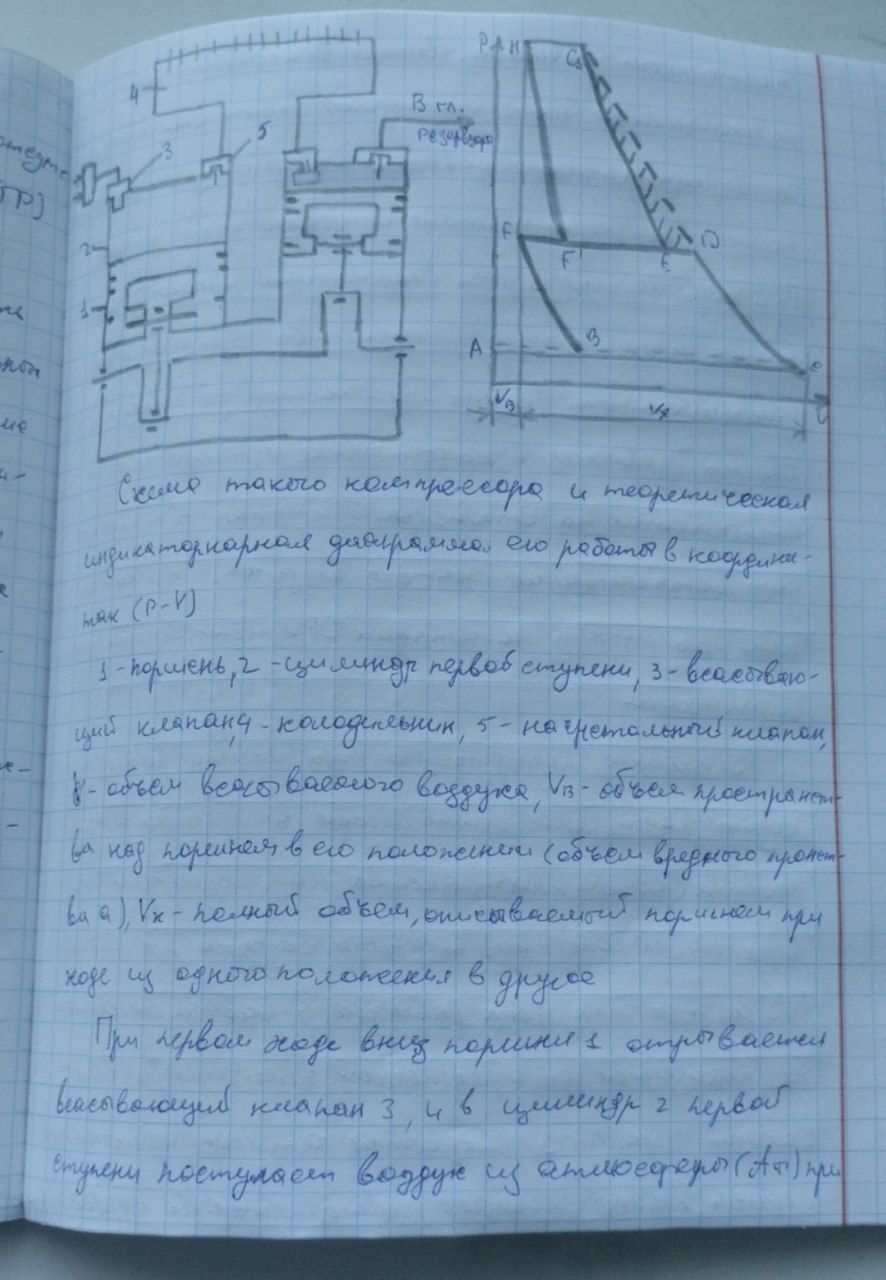 4
3
5
В гл.
резервуар
2
1
P
H
G
F
F'
E
D
A
B
C
VB
Vx
V
Схема такого компрессора и теоретическая
индикаторнарная диаграмма его работы в координа-
так (P-V)
1-поршень, 2-цилиндр первой ступени, 3-всасываю-
щий клапан, 4-холодильник, 5-нагнетальный клапан,
V-объем всасываемого воздуха, VB-объем пространст-
ва над поршнем в его положении (объем вредного пронст-
ва а), Vx-полный объем, описываемый поршнем при
ходе из одного положения в другое
При первом ходе вниз поршня 1 открывается
всасывающий клапан 3, и в цилиндр 2 первой
ступени поступает воздух из атмосферы (Ат) при